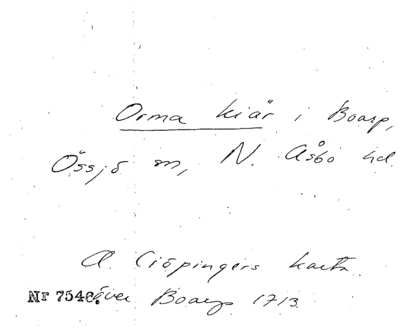 Orma kiär i Boarp,
Össjö sn, N. Åsbo hd.
A. Ciöpingers karta
Nr 7546. över Boarp 1713.